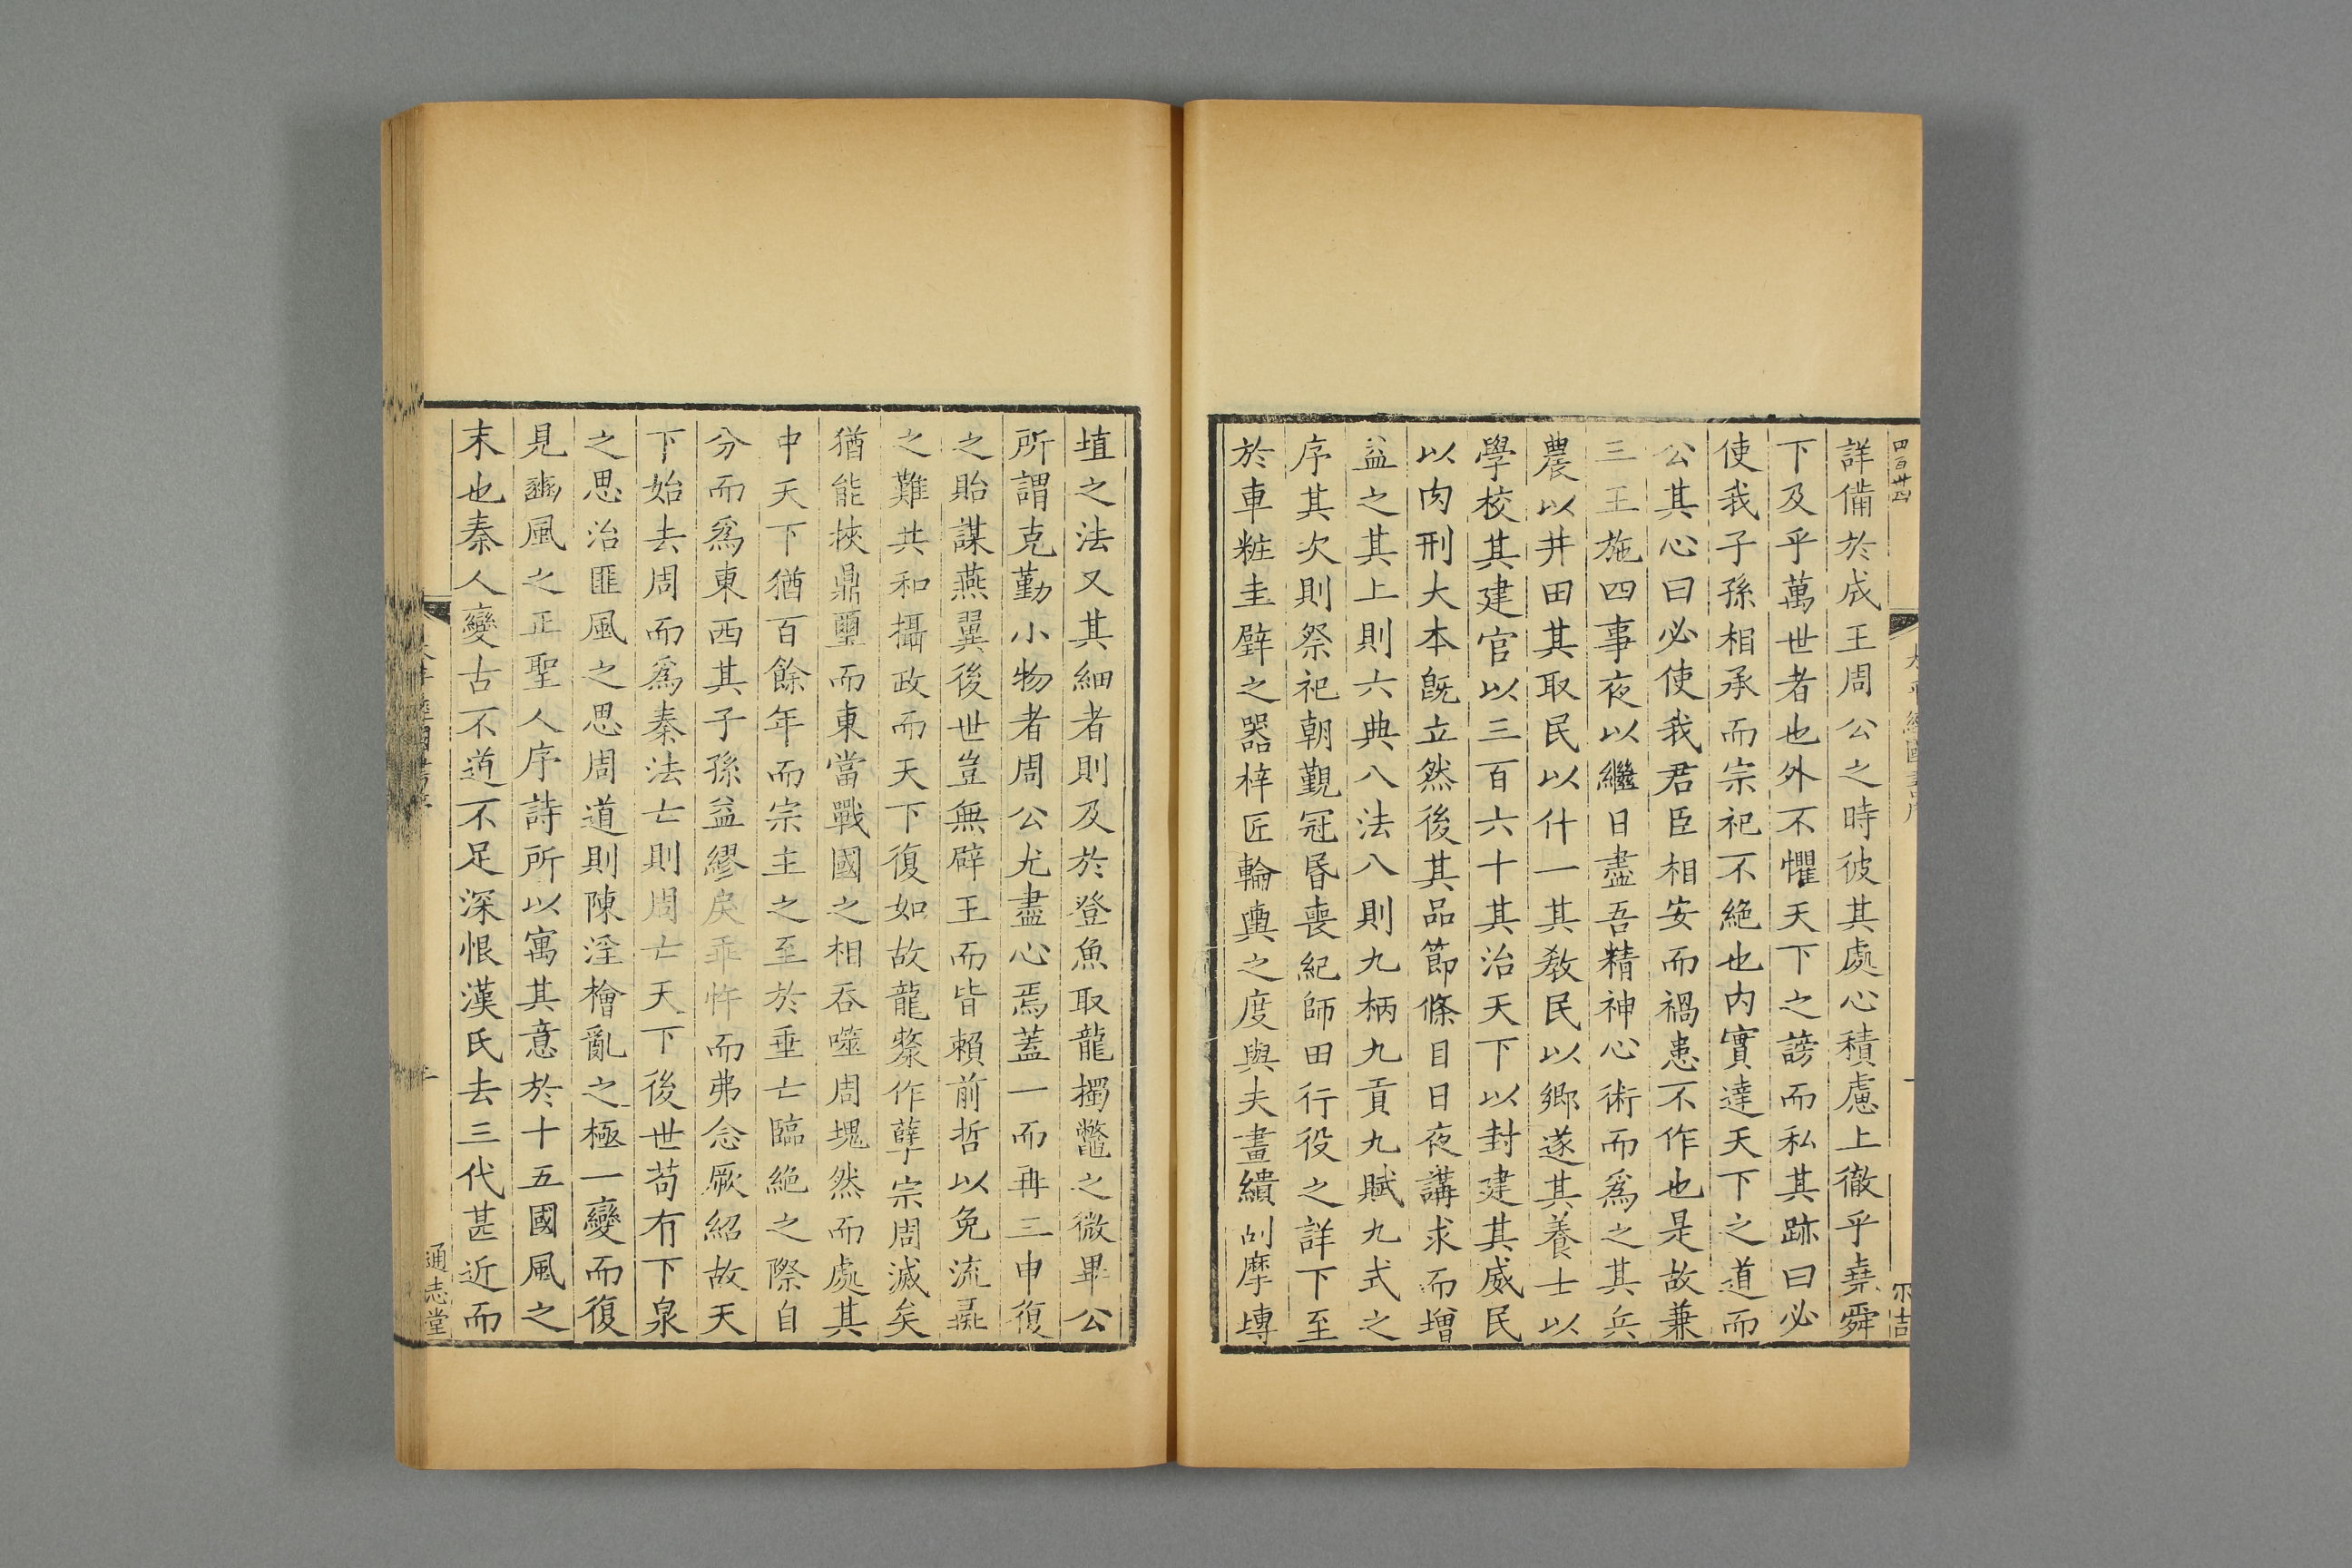 四百廿四
太平經國書序
一
詳備於成王周公之時彼其處心積慮上徹乎堯舜
下及乎萬世者也外不懼天下之謗而私其跡曰必
使我子孫相承而宗祀不絶也内實達天下之道而
公其心曰必使我君臣相安而禍患不作也是故兼
三王施四事夜以繼日盡吾精神心術而爲之其兵
農以井田其取民以什一其教民以鄉遂其養士以
學校其建官以三百六十其治天下以封建其威民
以肉刑大本旣立然後其品節條目日夜講求而增
益之其上則六典八法八則九柄九貢九賦九式之
序其次則祭祀朝覲冠昏喪紀師田行役之詳下至
於車粧圭璧之器梓匠輪輿之度與夫畫繢刮摩塼
埴之法又其細者則及於登魚取龍擉鼈之微畢公
所謂克勤小物者周公尤盡心焉蓋一而再三申復
之貽謀燕翼後世豈無辟王而皆賴前哲以免流彘
之難共和攝政而天下復如故龍漦作孽宗周滅矣
猶能挾鼎璽而東當戰國之相吞噬周塊然而處其
中天下猶百餘年而宗主之至於垂亡臨絶之際自
分而爲東西其子孫益繆戾乖忤而弗念厥紹故天
下始去周而爲秦法亡則周亡天下後世苟有下泉
之思治匪風之思周道則陳淫檜亂之極一變而復
見豳風之正聖人序詩所以寓其意於十五國風之
末也秦人變古不道不足深恨漢氏去三代甚近而
通志堂